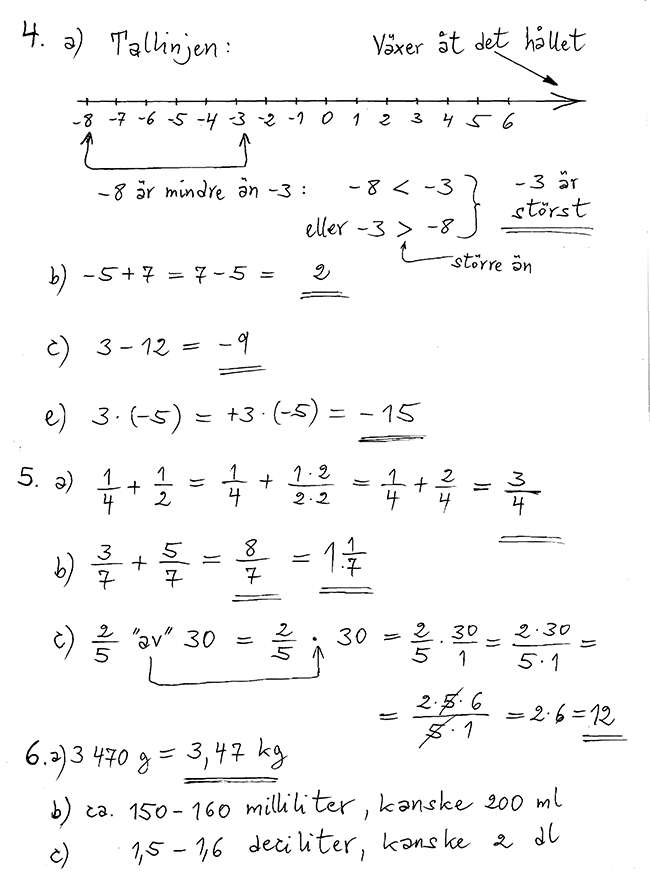 4. a) Tallinjen: Växer åt det hållet
-8 -7 -6 -5 -4 -3 -2 -1 0 1 2 3 4 5 6
-8 är mindre än -3: -8 < -3 -3 är
eller -3 > -8 störst
större än
b) -5+7 = 7-5 = 2
c) 3-12 = -9
e) 3·(-5) = +3·(-5) = -15
5. a) 1/4 + 1/2 = 1/4 + 1·2/2·2 = 1/4 + 2/4 = 3/4
b) 3/7 + 5/7 = 8/7 = 1 1/7
c) 2/5 "av" 30 = 2/5 · 30 = 2/5 · 30/1 = 2·30/5·1 =
= 2·5·6/5·1 = 2·6 = 12
6. a) 3 470 g = 3,47 kg
b) ca. 150-160 milliliter, kanske 200 ml
c) 1,5-1,6 deciliter, kanske 2 dl